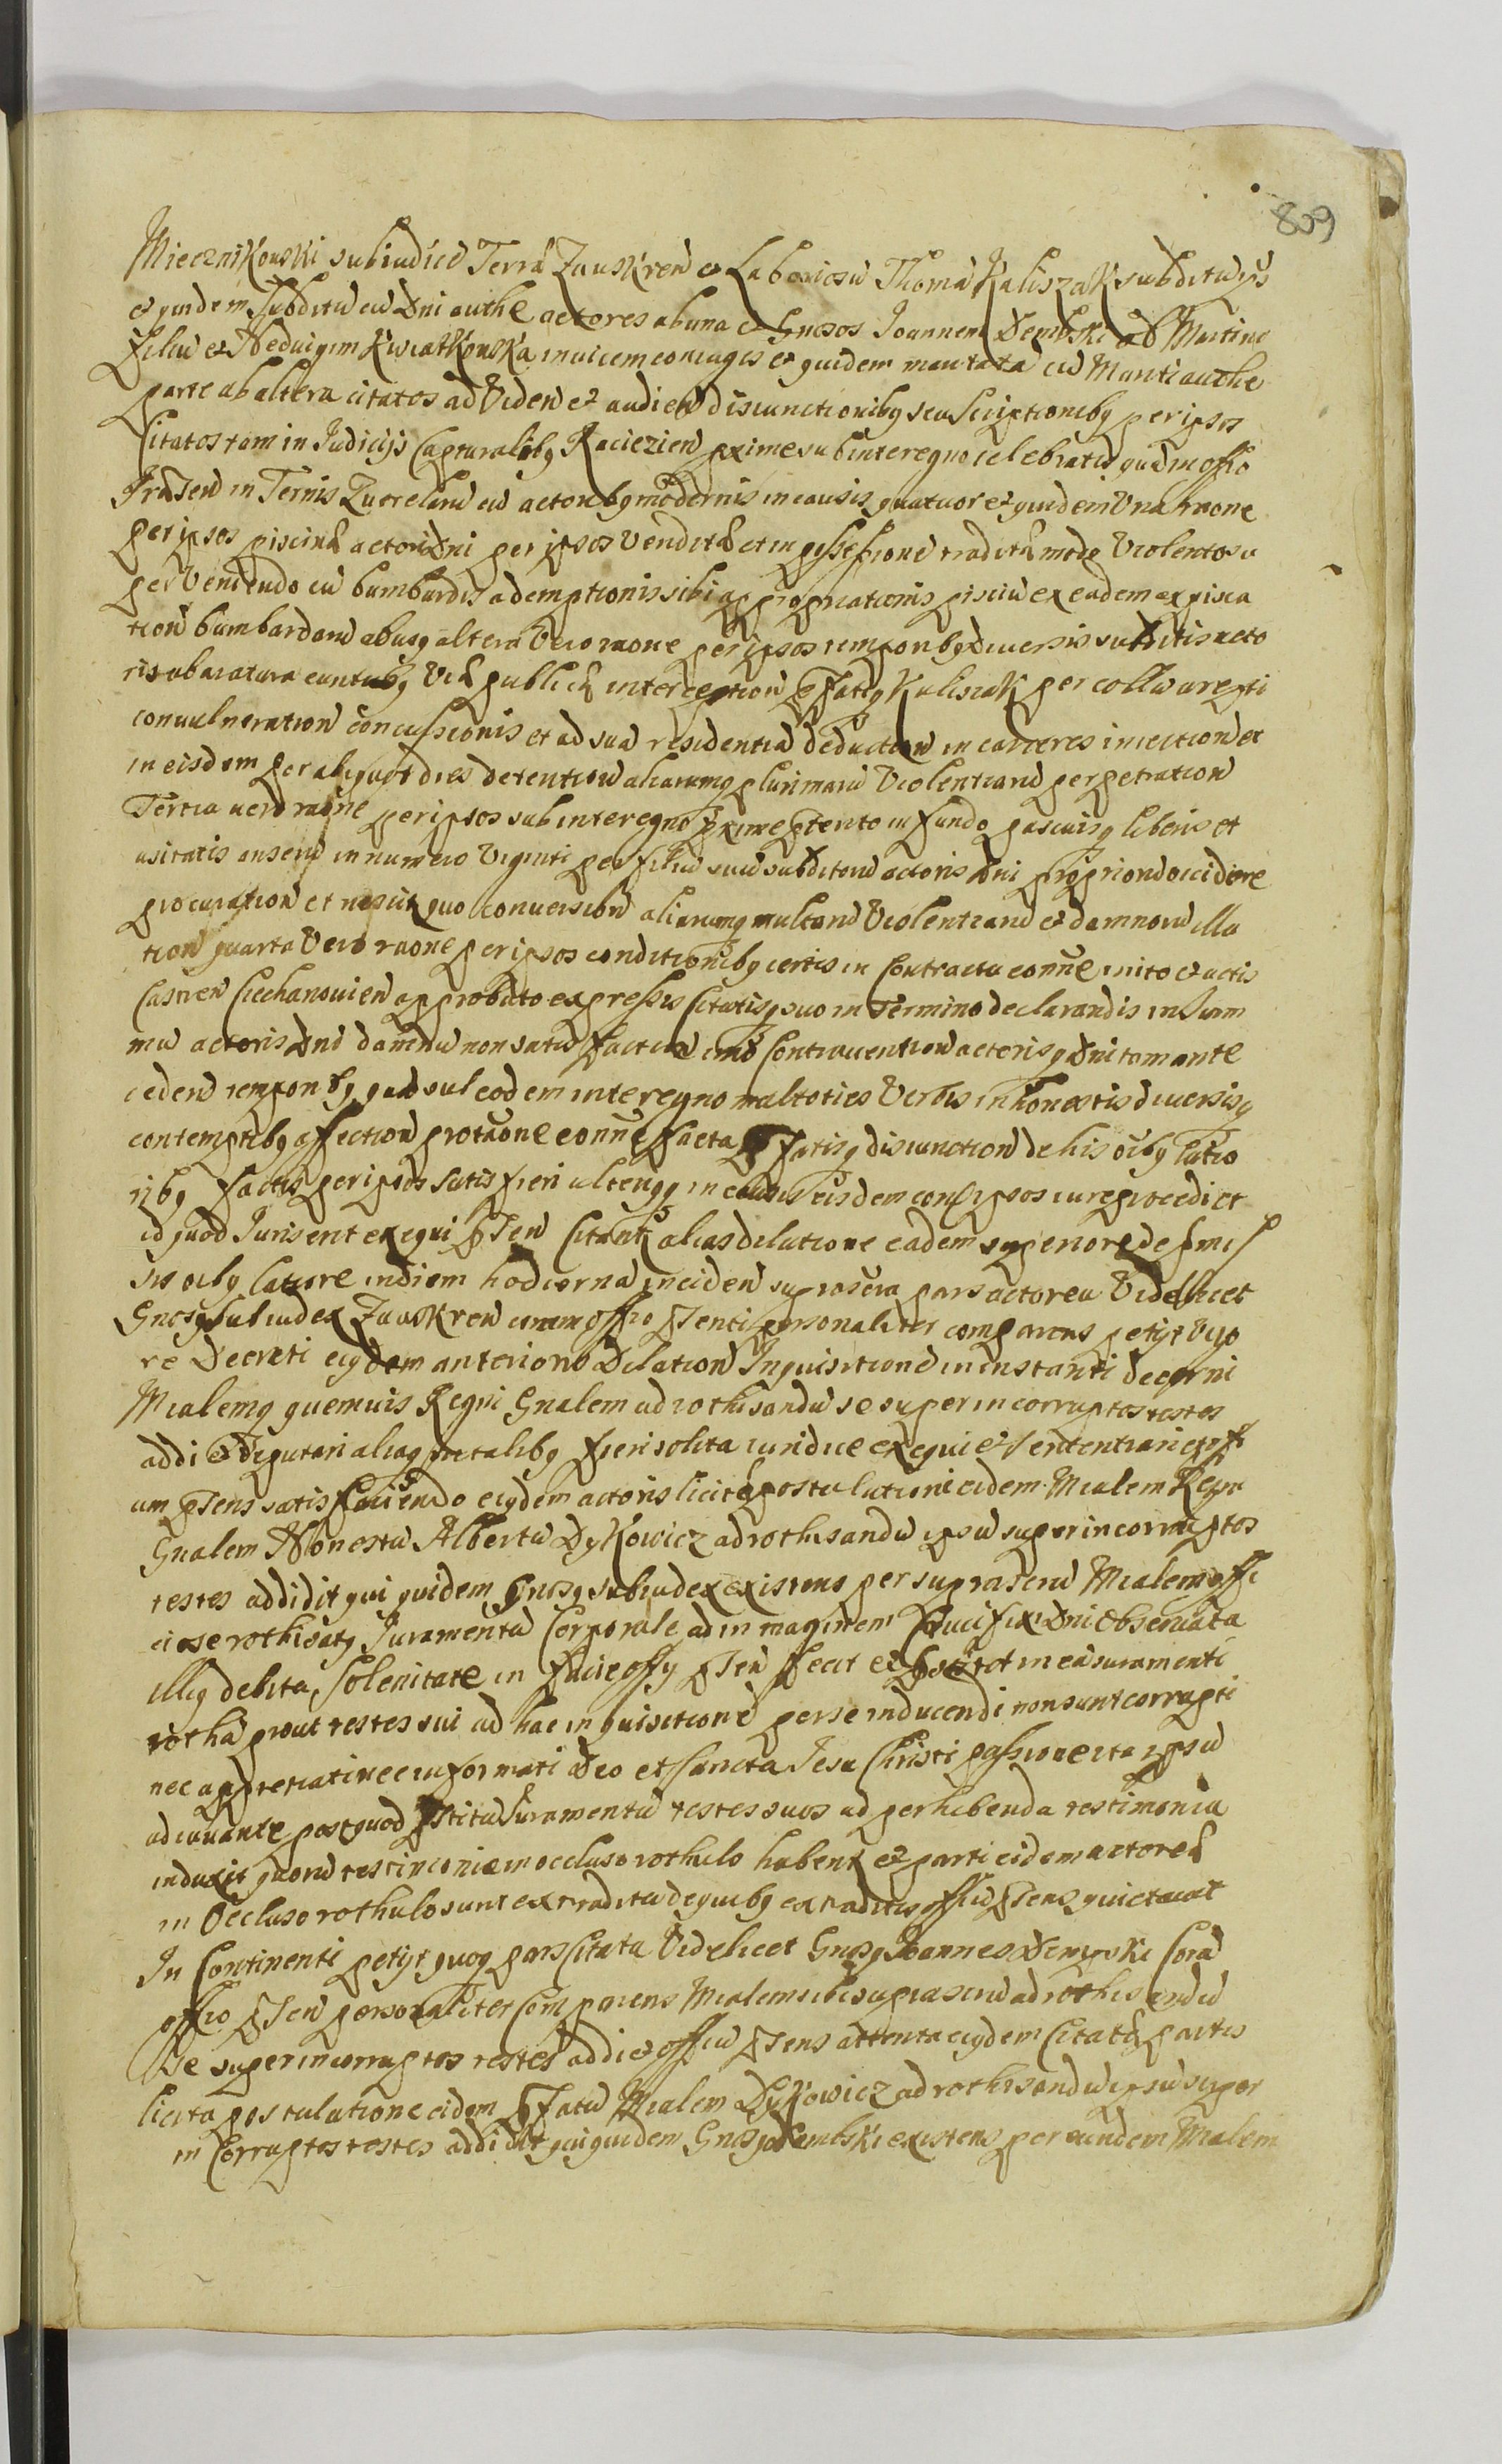 809
Miecznikouski subiudice Terrae Zauskren et Laboriosū Thomā Kaliszak subditū ejus
et quidem subditū cū Dni authe actores ab una et Gnosos Joannem Dembski ab Martino
filiū et Heduigim Kwiatkouska inuicem coniuges et quidem maritata cū Mariti authe
parte ab altera citatos ad Viden et audien disiunctionibq seu Sciptionibq per ipsos
Citatos tam in Judicijs Capturalibq Raciezien proxime sub interegno celebratis quam in offio
Pnti in Ternis Zucreland cū actoribq modernis in causis quatuor et quidem Una raone
per ipsos piscinae actori Dni per ipsos Venditae et in possessione traditae modo Violentosu
per Veniendo cū bumbardis ademptionis sibi appropriationis pisciū ex eadem expisca
tion bumbardarū abusq altera Vero raone per ipsos temporibq diuersis subditis acto
ris ab aratura euntubq Via publica interception pfatiq Kaliszak per collū arepti
conuulneration concussionis et ad sua residentia deduction in carceres iniection et
in eisdem per aliquot dies detention aliarumq plurimarū Violentiarū perpetration
Tertia uero raone per ipsos sub interegno proxime ptento in fundo pascuisq liberis et
usitatis anserū in numero Viginti per filiū suū subditorū actoris Dni propriorū occidere
procuration et nescit quo conuersion aliarumq multarū Violentiarū et damnorū illa
tion quarta Vero raone per ipsos conditionibq certis in Contractu eonne inito et actis
Castren Ciechanouien approbato expressis Citatisq suo in Termino declarandis in Sum
mū actoris Dni damnū non satis faction imo Contrauention actorisq Dni tam ante
ceden temporibq quam sub eodem interegno multoties Verbis inhonestis diuersisq
contemptibq affection protraone eonne facta pfatisq disiunction de his oibq latio
ribq factis per ipsos satis fieri ulteriusq in causis eisdem con ipsos iure procedi et
id quod Juris erit exequi pnten Citant alias dilatione eadem superiore de p mis
sis oibq latiore in diem hodierna inciden suprascra pars actorea Videlicet
Gnosq subiudex Zauskren coram offio pnti personaliter comparens petijt Vigo
re Decreti eiqdem anterioris Dilation Inquisitione in instanti decerni
Mialemq quemuis Regni Gnalem ad rothisandū se super incorruptos testes
addi et deputari aliaq in talibq fieri solita iuridice exequi et sententiari et offi
um pntens satis faciendo eiqdem actoris licite postulationi eidem Mialem Regni
Gnalem Honestū Albertū Dykowicz ad rothisandū ipsū super incorruptos
testes addidit qui quidem Gnosq subiudex existens per suprascrū Mialem offi
ciose rothisatq Juramentū Corporale ad in maginem Crucifixi Dni Obseruata
illiq debita Solenitate in facie offij pnten fecit et pstitit in ea iuramenti
rotha prout testes sui ad hac inquisitione per se inducendi non sunt corrupti
nec appretiati nec informati Deo et Sancta Jesu Christi passione ita ipsū
adiuuante post quod pstitū Juramentū testes suos ad perhibenda testimonia
induxit quorū testimonia in occluso rothulo habent et parti eidem actoreae
in Occluso rothulo sunt extradita de quibq extraditis offiū pntens quietauit
In Continenti petijt quoq pars Citata Videlicet Gnosq Joannes Dempski Cora
offio pnten personaliter Comparens Mialem ibi suprascrū ad rothisandū
se super incorruptos testes addi et offiū pntens attenta eiqdem Citatae partis
licita postulatione eidem pfatū Mialem Dykowicz ad rothisandū ipsū super
in Corruptos testes addidit qui quidem Gnosq Dembski existens per eundem Mialem